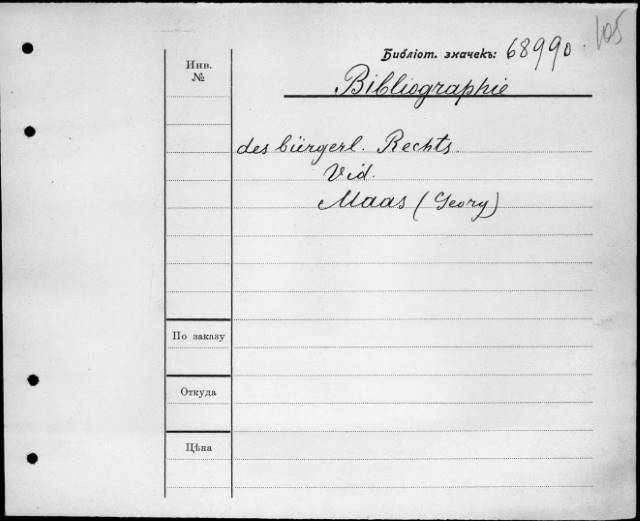 105
Библіот. значекъ: 68990
Инв.
№
Bibliographie
des bürgerl. Rechts.
Vid.
Maas (Georg)
По заказу
Откуда
Цѣна